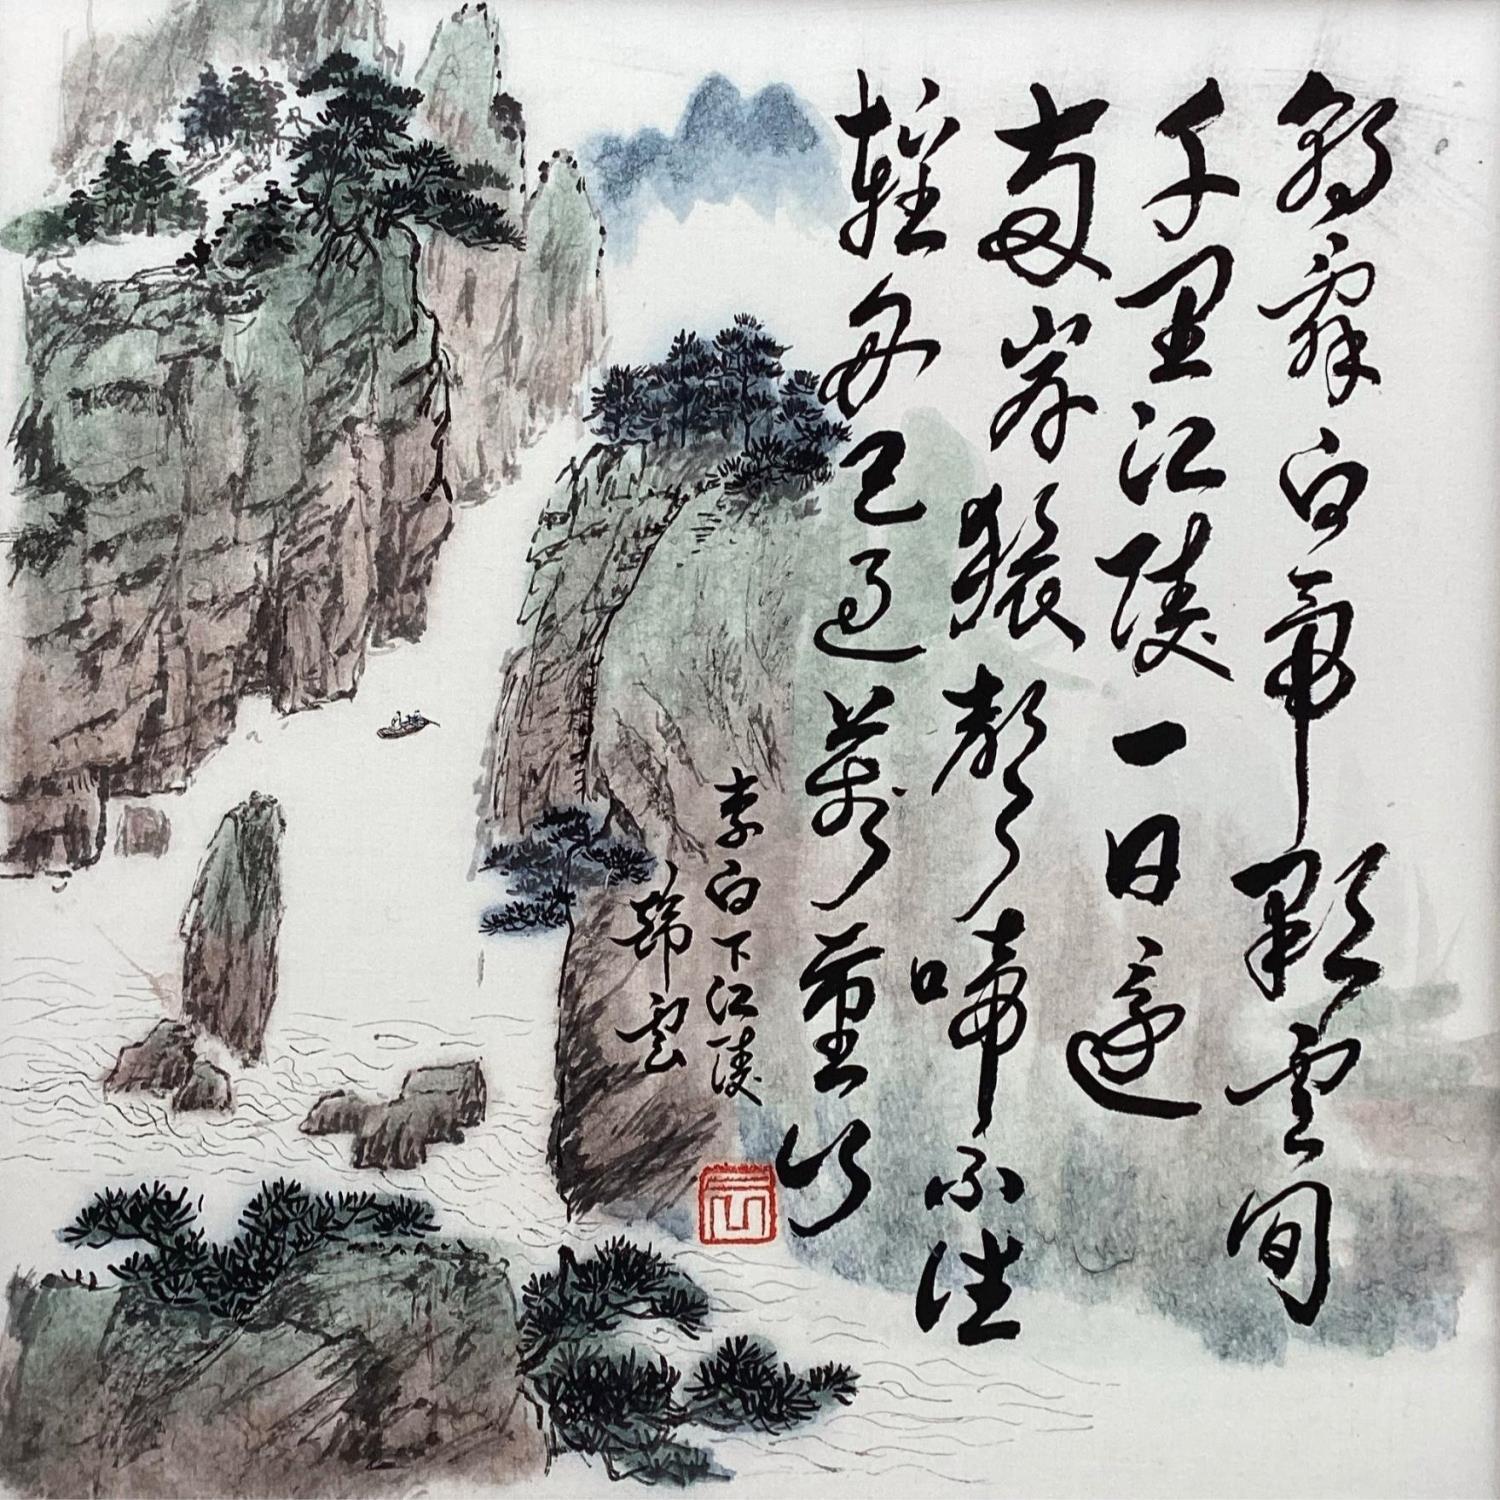 朝辭白帝彩雲間
千里江陵一日還
兩岸猿聲啼不住
輕舟已過萬重山
李白下江陵
雲